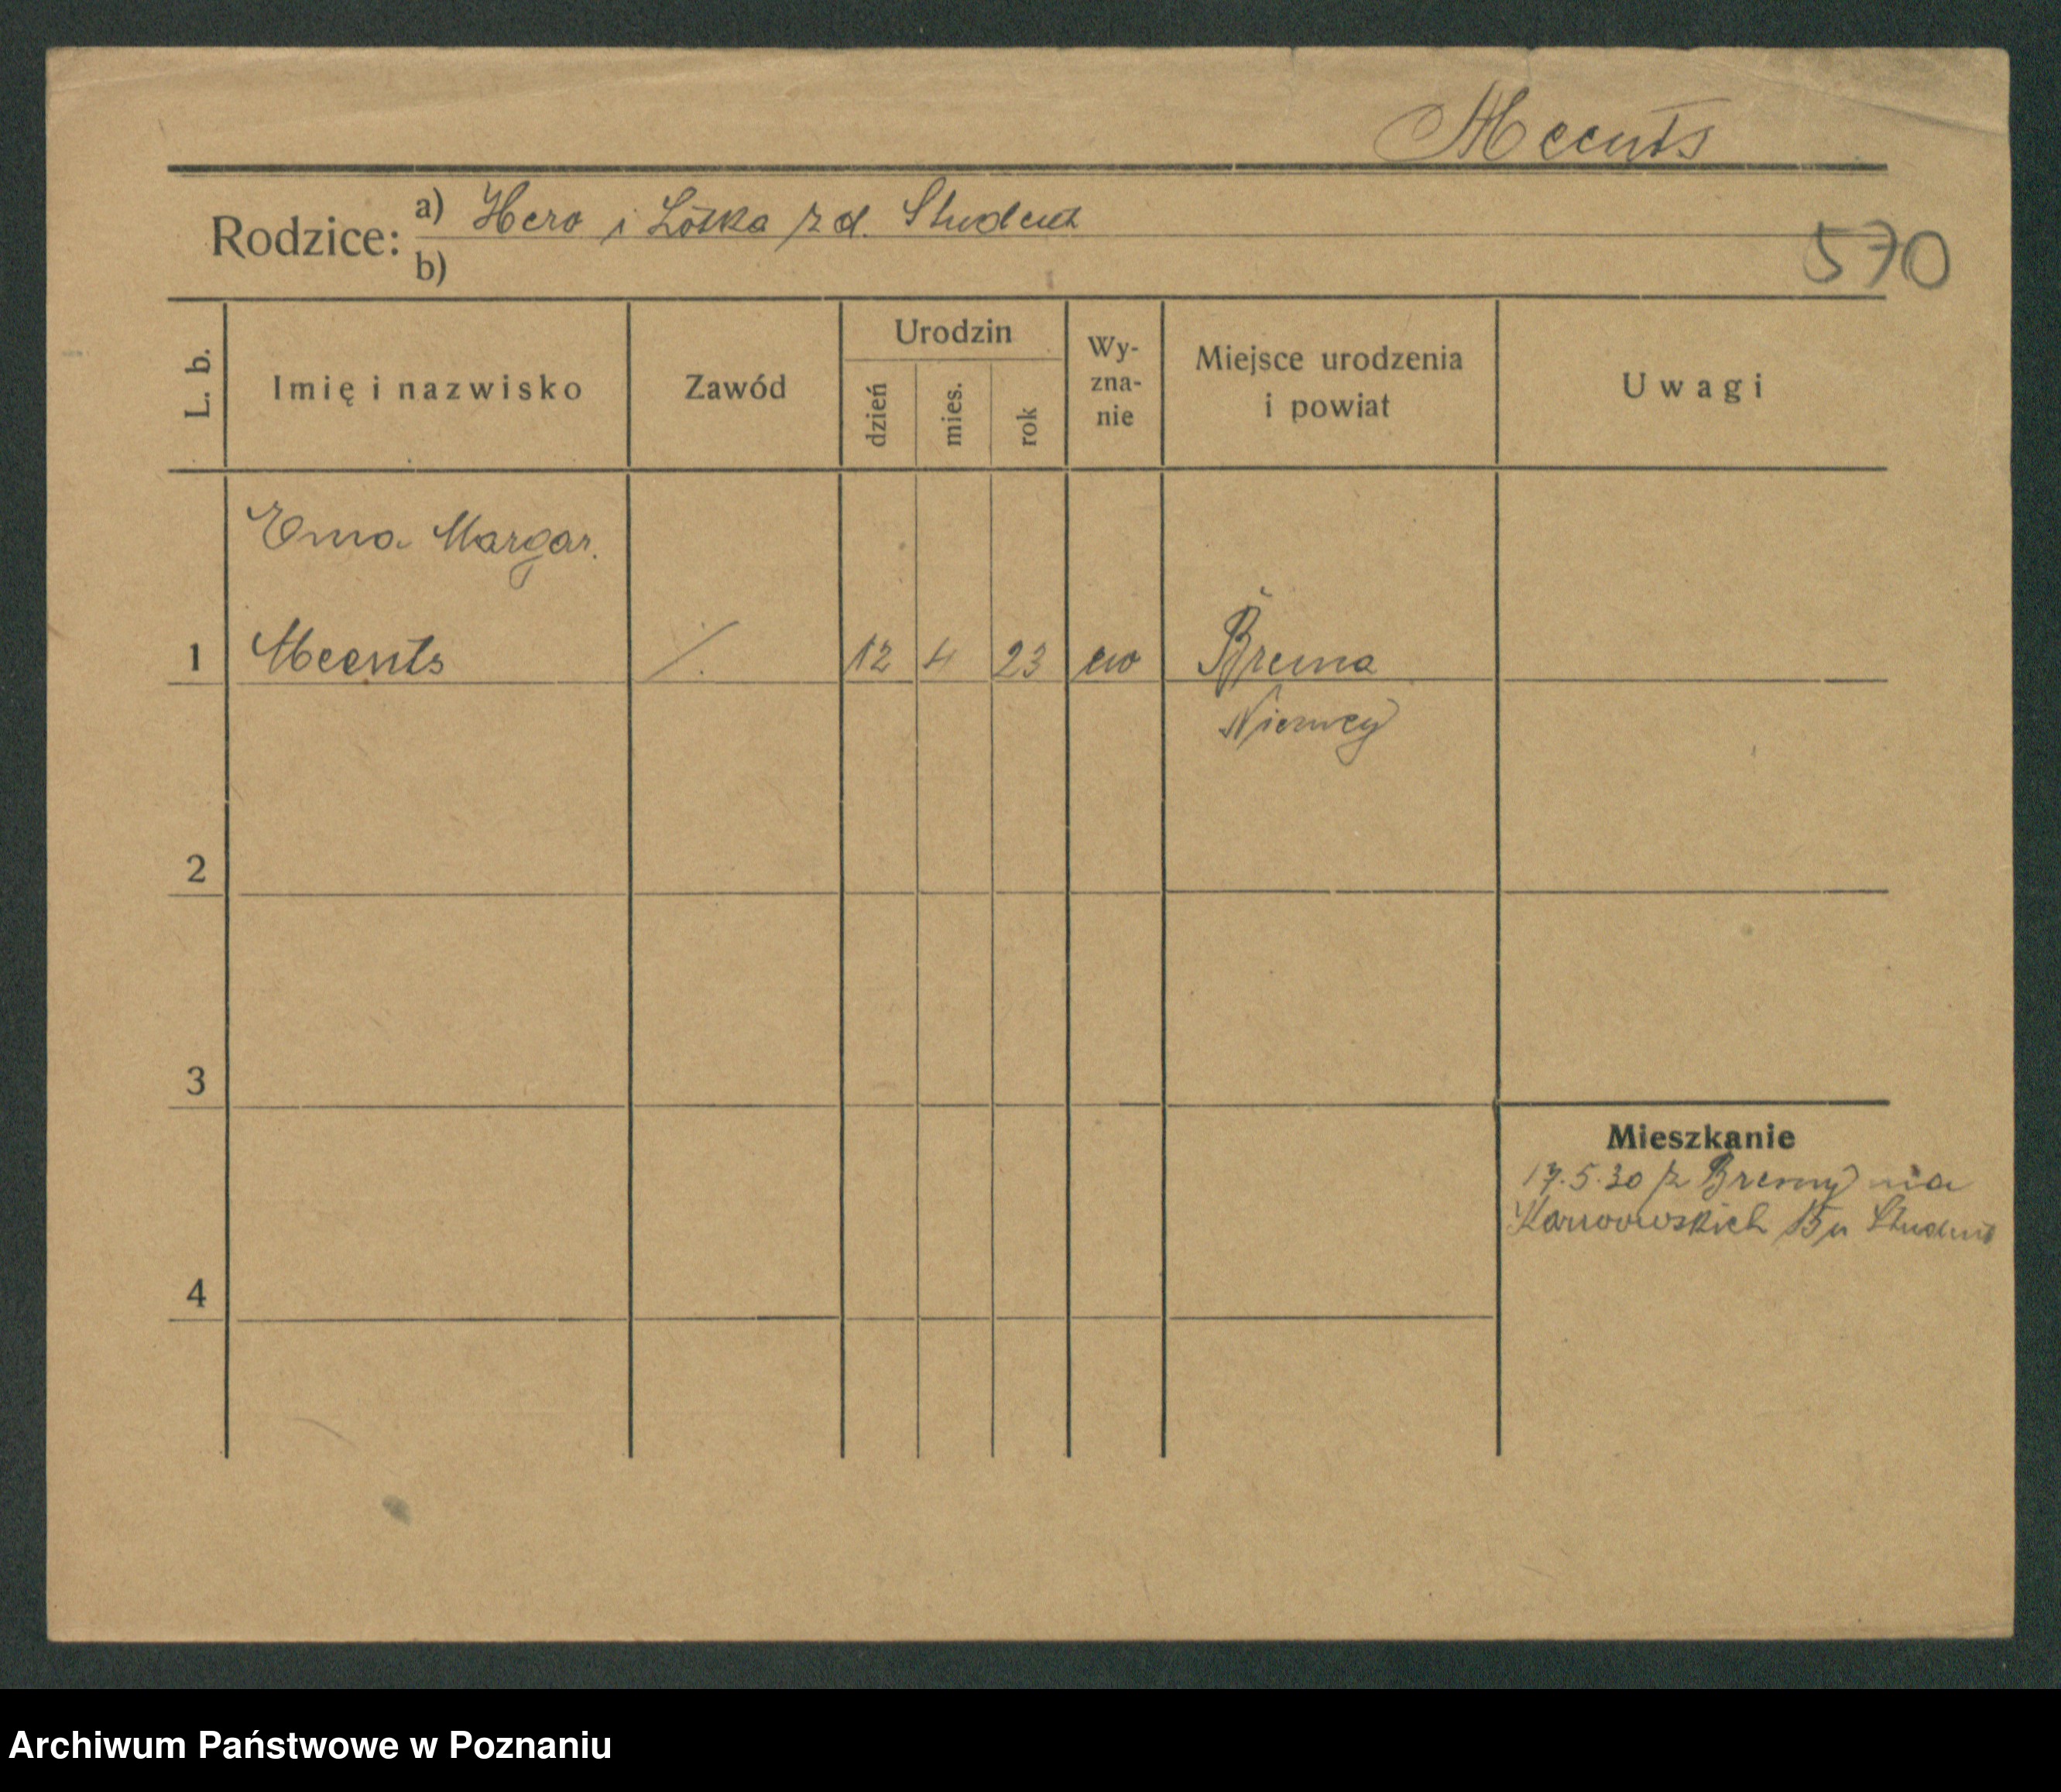 Meents
Rodzice: a) Hero i Lotka z d. Student
b)
570
L. b.
Imię i nazwisko
Zawód
Urodzin
dzień
mies.
rok
Wy-
zna-
nie
Miejsce urodzenia
i powiat
Uwagi
Ema Margar.
1 Meents ·/. 12 4 23 ew Brema
Niemcy
2
3
Mieszkanie
17.5.30 z Bremy na
Karwowskich 15 u Student
4
Archiwum Państwowe w Poznaniu